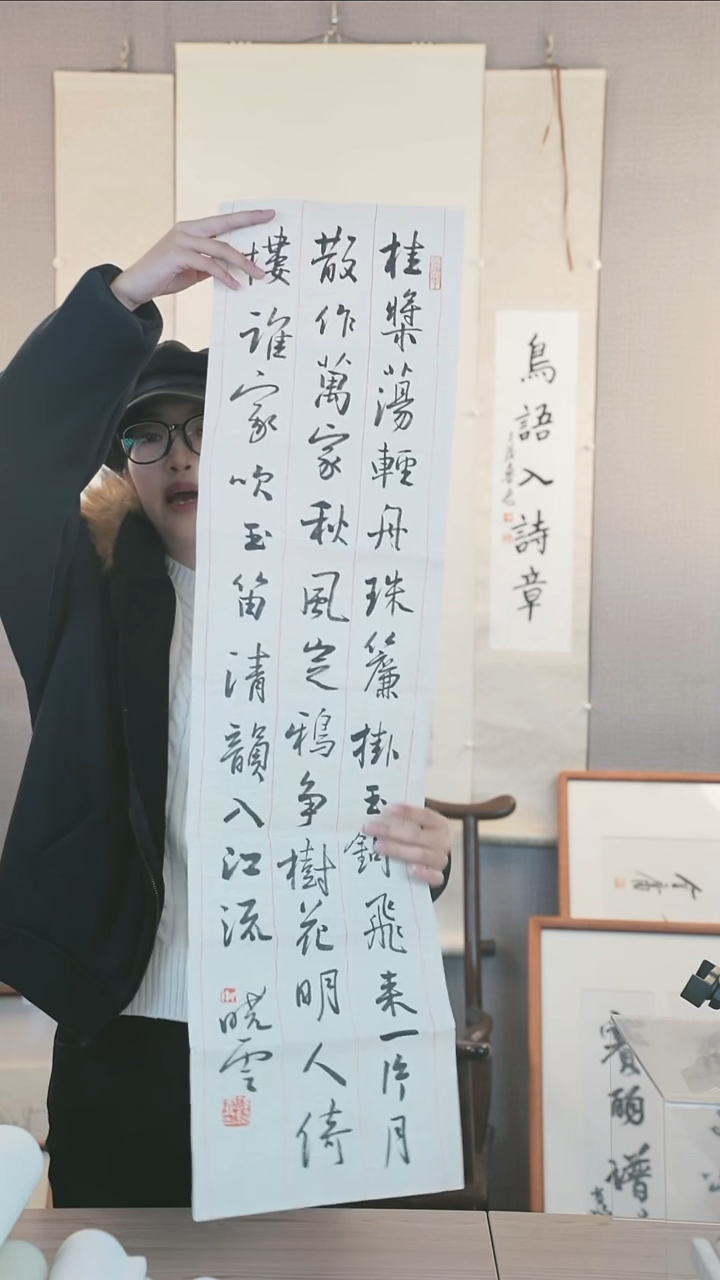 桂槳蕩輕舟珠簾掛玉鉤飛来一片月
散作萬家秋風定鴉争樹花明人倚
樓誰家吹玉笛清韻入江流
晓雲
鳥語入詩章